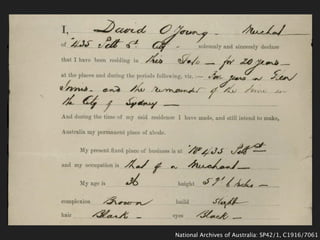 I, David O'Young. Merchant
of 435 Pitt St City solemnly and sincerely declare
that I have been residing in this State for 20 years
at the places and during the periods following, viz. — For years in Glen
Innes and the remainder of the time in
the City of Sydney
And during the time of my said residence I have made, and still intend to make,
Australia my permanent place of abode.
My present fixed place of business is at No 435 Pitt St
and my occupation is that of a Merchant
My age is 36 height 5 9
complexion Brown build Slight
hair Black eyes Black
National Archives of Australia: SP42/1, C1916/7061